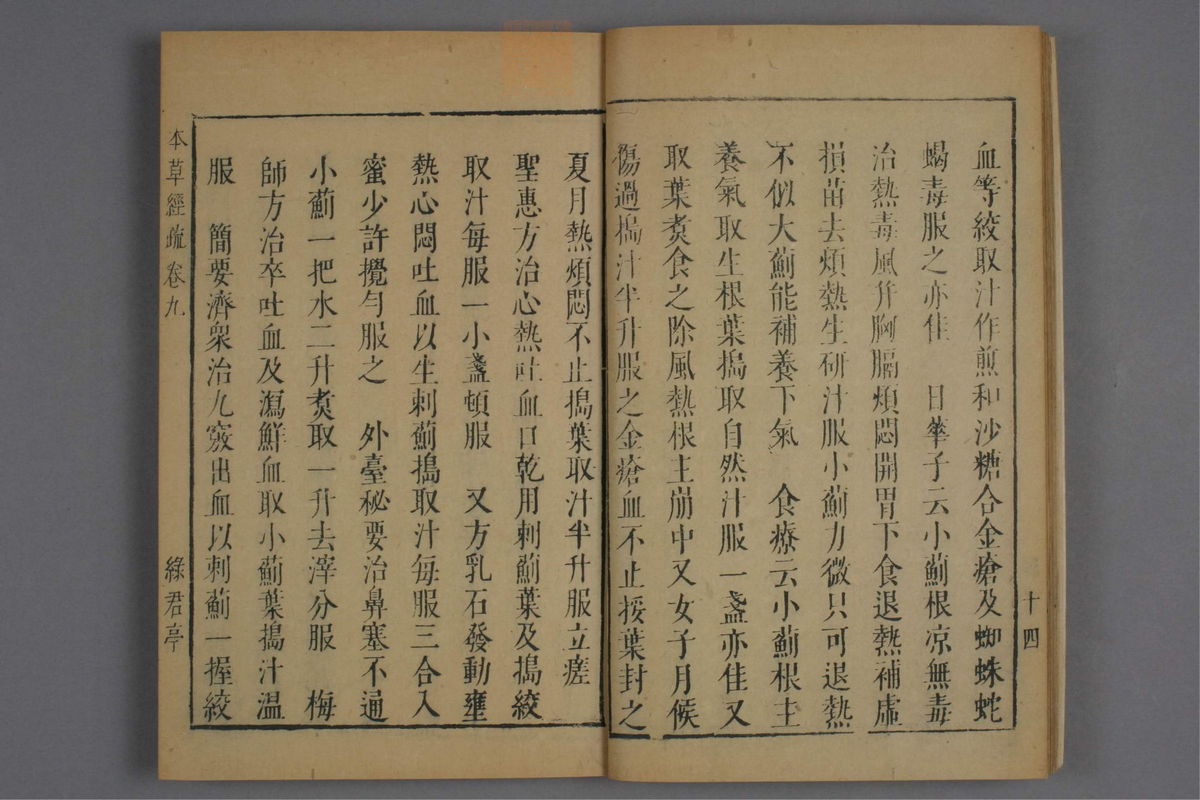 血等絞取汁作煎和沙糖合金瘡及蜘蛛蛇
蝎毒服之亦佳　日華子云小薊根凉無毒
治熱毒風并胸膈煩悶開胃下食退熱補虛
損苗去煩熱生研汁服小薊力微只可退熱
不似大薊能補養下氣　食療云小薊根主
養氣取生根葉搗取自然汁服一盞亦佳又
取葉煑食之除風熱根主崩中又女子月候
傷過搗汁半升服之金瘡血不止挼葉封之
十四
夏月熱煩悶不止搗葉取汁半升服立瘥
聖惠方治心熱吐血口乾用刺薊葉及搗絞
取汁每服一小盞頓服　又方乳石發動壅
熱心悶吐血以生刺薊搗取汁每服三合入
蜜少許攪勻服之　外臺秘要治鼻塞不通
小薊一把水二升煑取一升去滓分服　梅
師方治卒吐血及瀉鮮血取小薊葉搗汁温
服　簡要濟衆治九竅出血以刺薊一握絞
本草經疏卷九　綠君亭